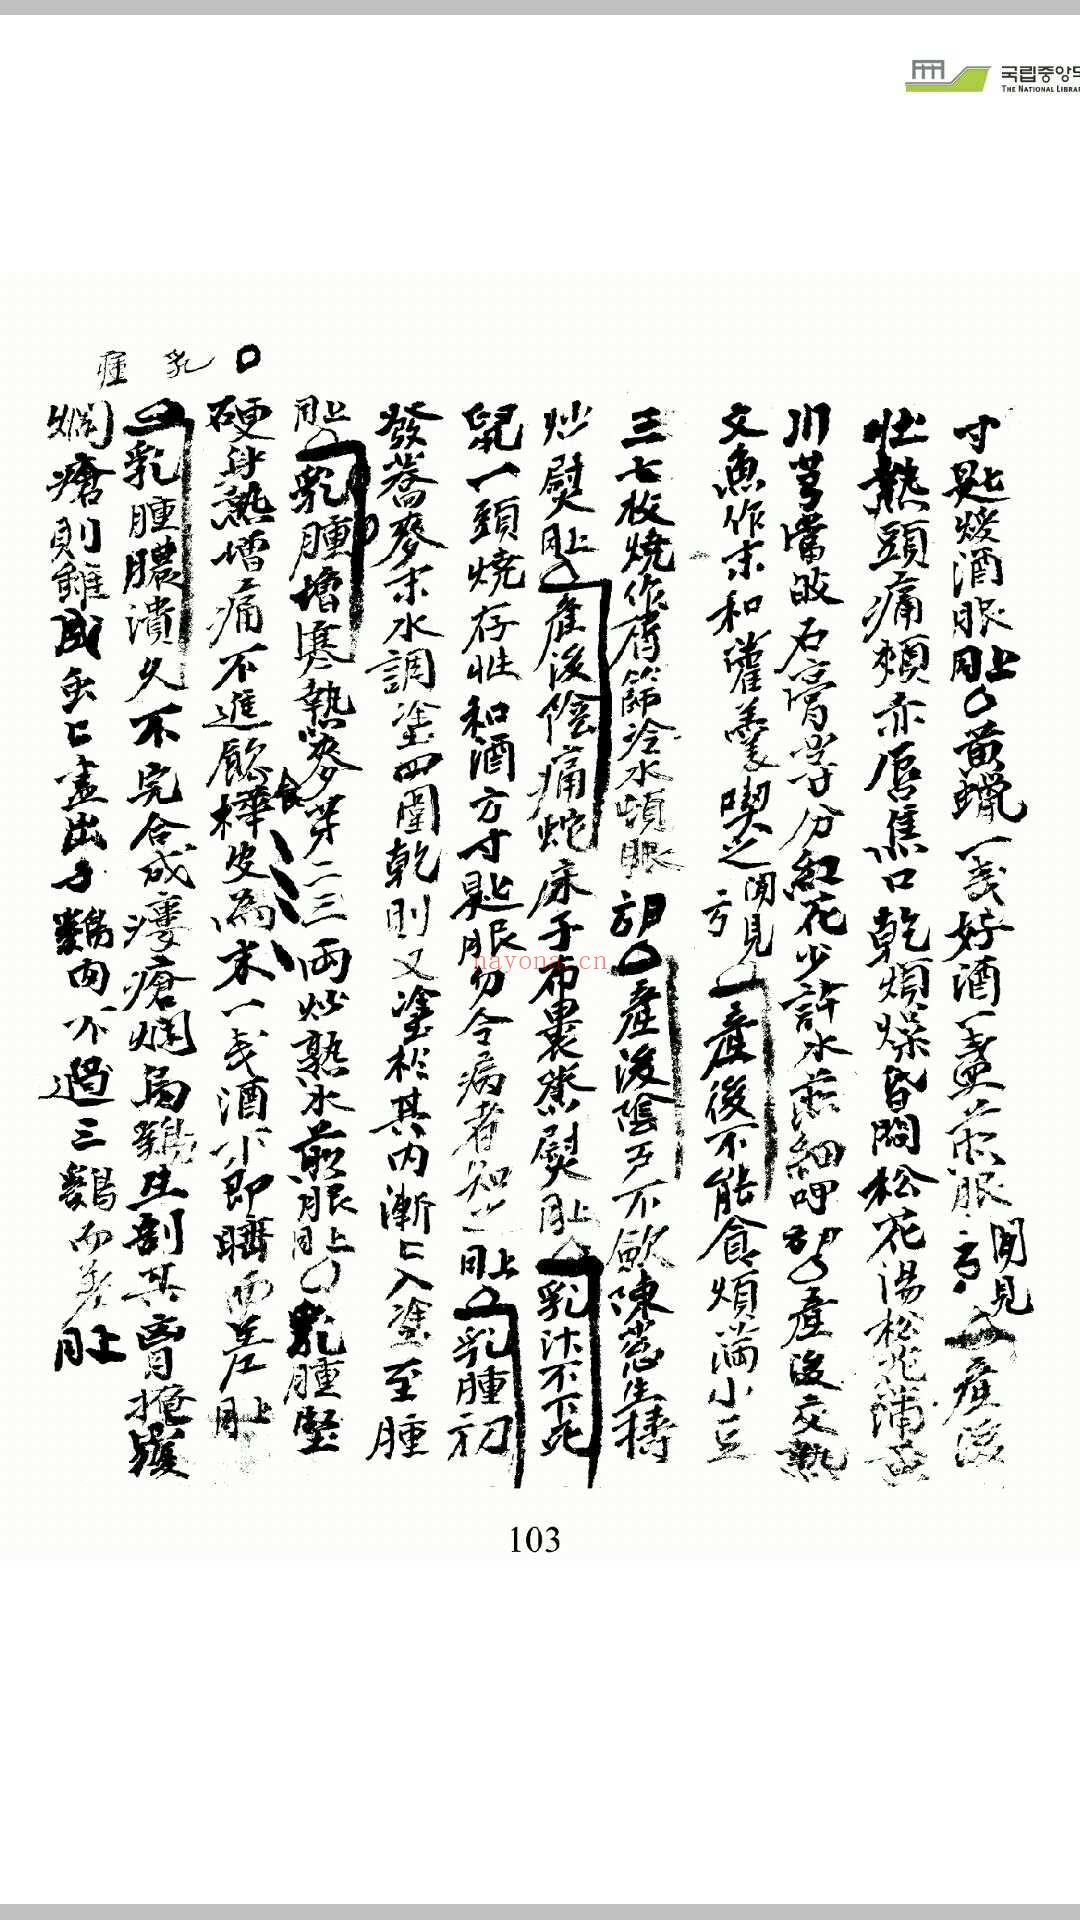 국립중앙도
THE NATIONAL LIBRAR
寸匙煖酒服肚○黃蠟一戔好酒一盞煎服 聞見方 產後
壯熱頭痛頰赤唇焦口乾煩燥昏悶松花湯松花蒲黃
川芎當皈石膏等分紅花少許水煎細呷 產後交熱
文魚作末和藿羹喫之 聞見方 產後不能食煩滿小豆
三七枚燒作屑篩冷水頓服 ○產後陰不歛陳葱生擣
炒熨肚○產後陰痛蛇床子布裹蒸熨肚○乳汁不下死
鼠一頭燒存性和酒方寸匙服勿令病者知之肚○乳腫初
發蕎麥末水調塗四圍乾則又塗於其內漸〻入塗至腫
肚○乳腫增寒熱麥芽二三兩炒熟水煎服肚○乳腫堅
硬身熱增痛不進飮食樺皮為末一戔酒下即睡而差肚
乳腫膿潰久不完合成瘻瘡爛烏鷄生割其胷掩襲
爛瘡則雖成虫〻盡出子鷄肉不過三鷄而差肚
○乳腫
103
nayona.cn